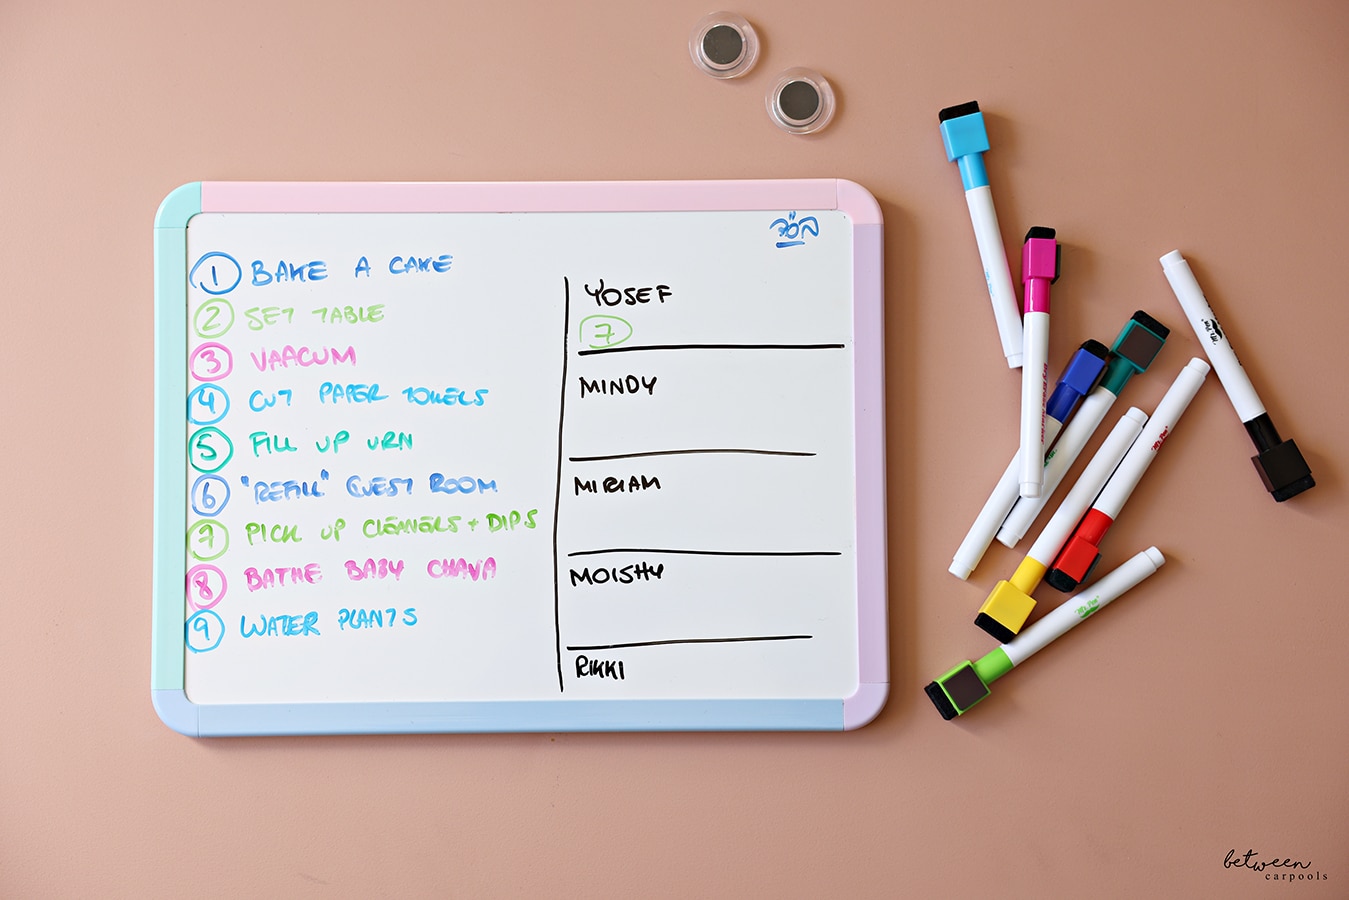 בס"ד
1 BAKE A CAKE
2 SET TABLE
3 VAACUM
4 CUT PAPER TOWELS
5 FILL UP URN
6 "REFILL" GUEST ROOM
7 PICK UP CLEANERS + DIPS
8 BATHE BABY CHAVA
9 WATER PLANTS
YOSEF
7
MINDY
MIRIAM
MOISHY
RIKKI
"Mr. Pen"
"Mr. Pen"
"Mr. Pen"
between
carpools